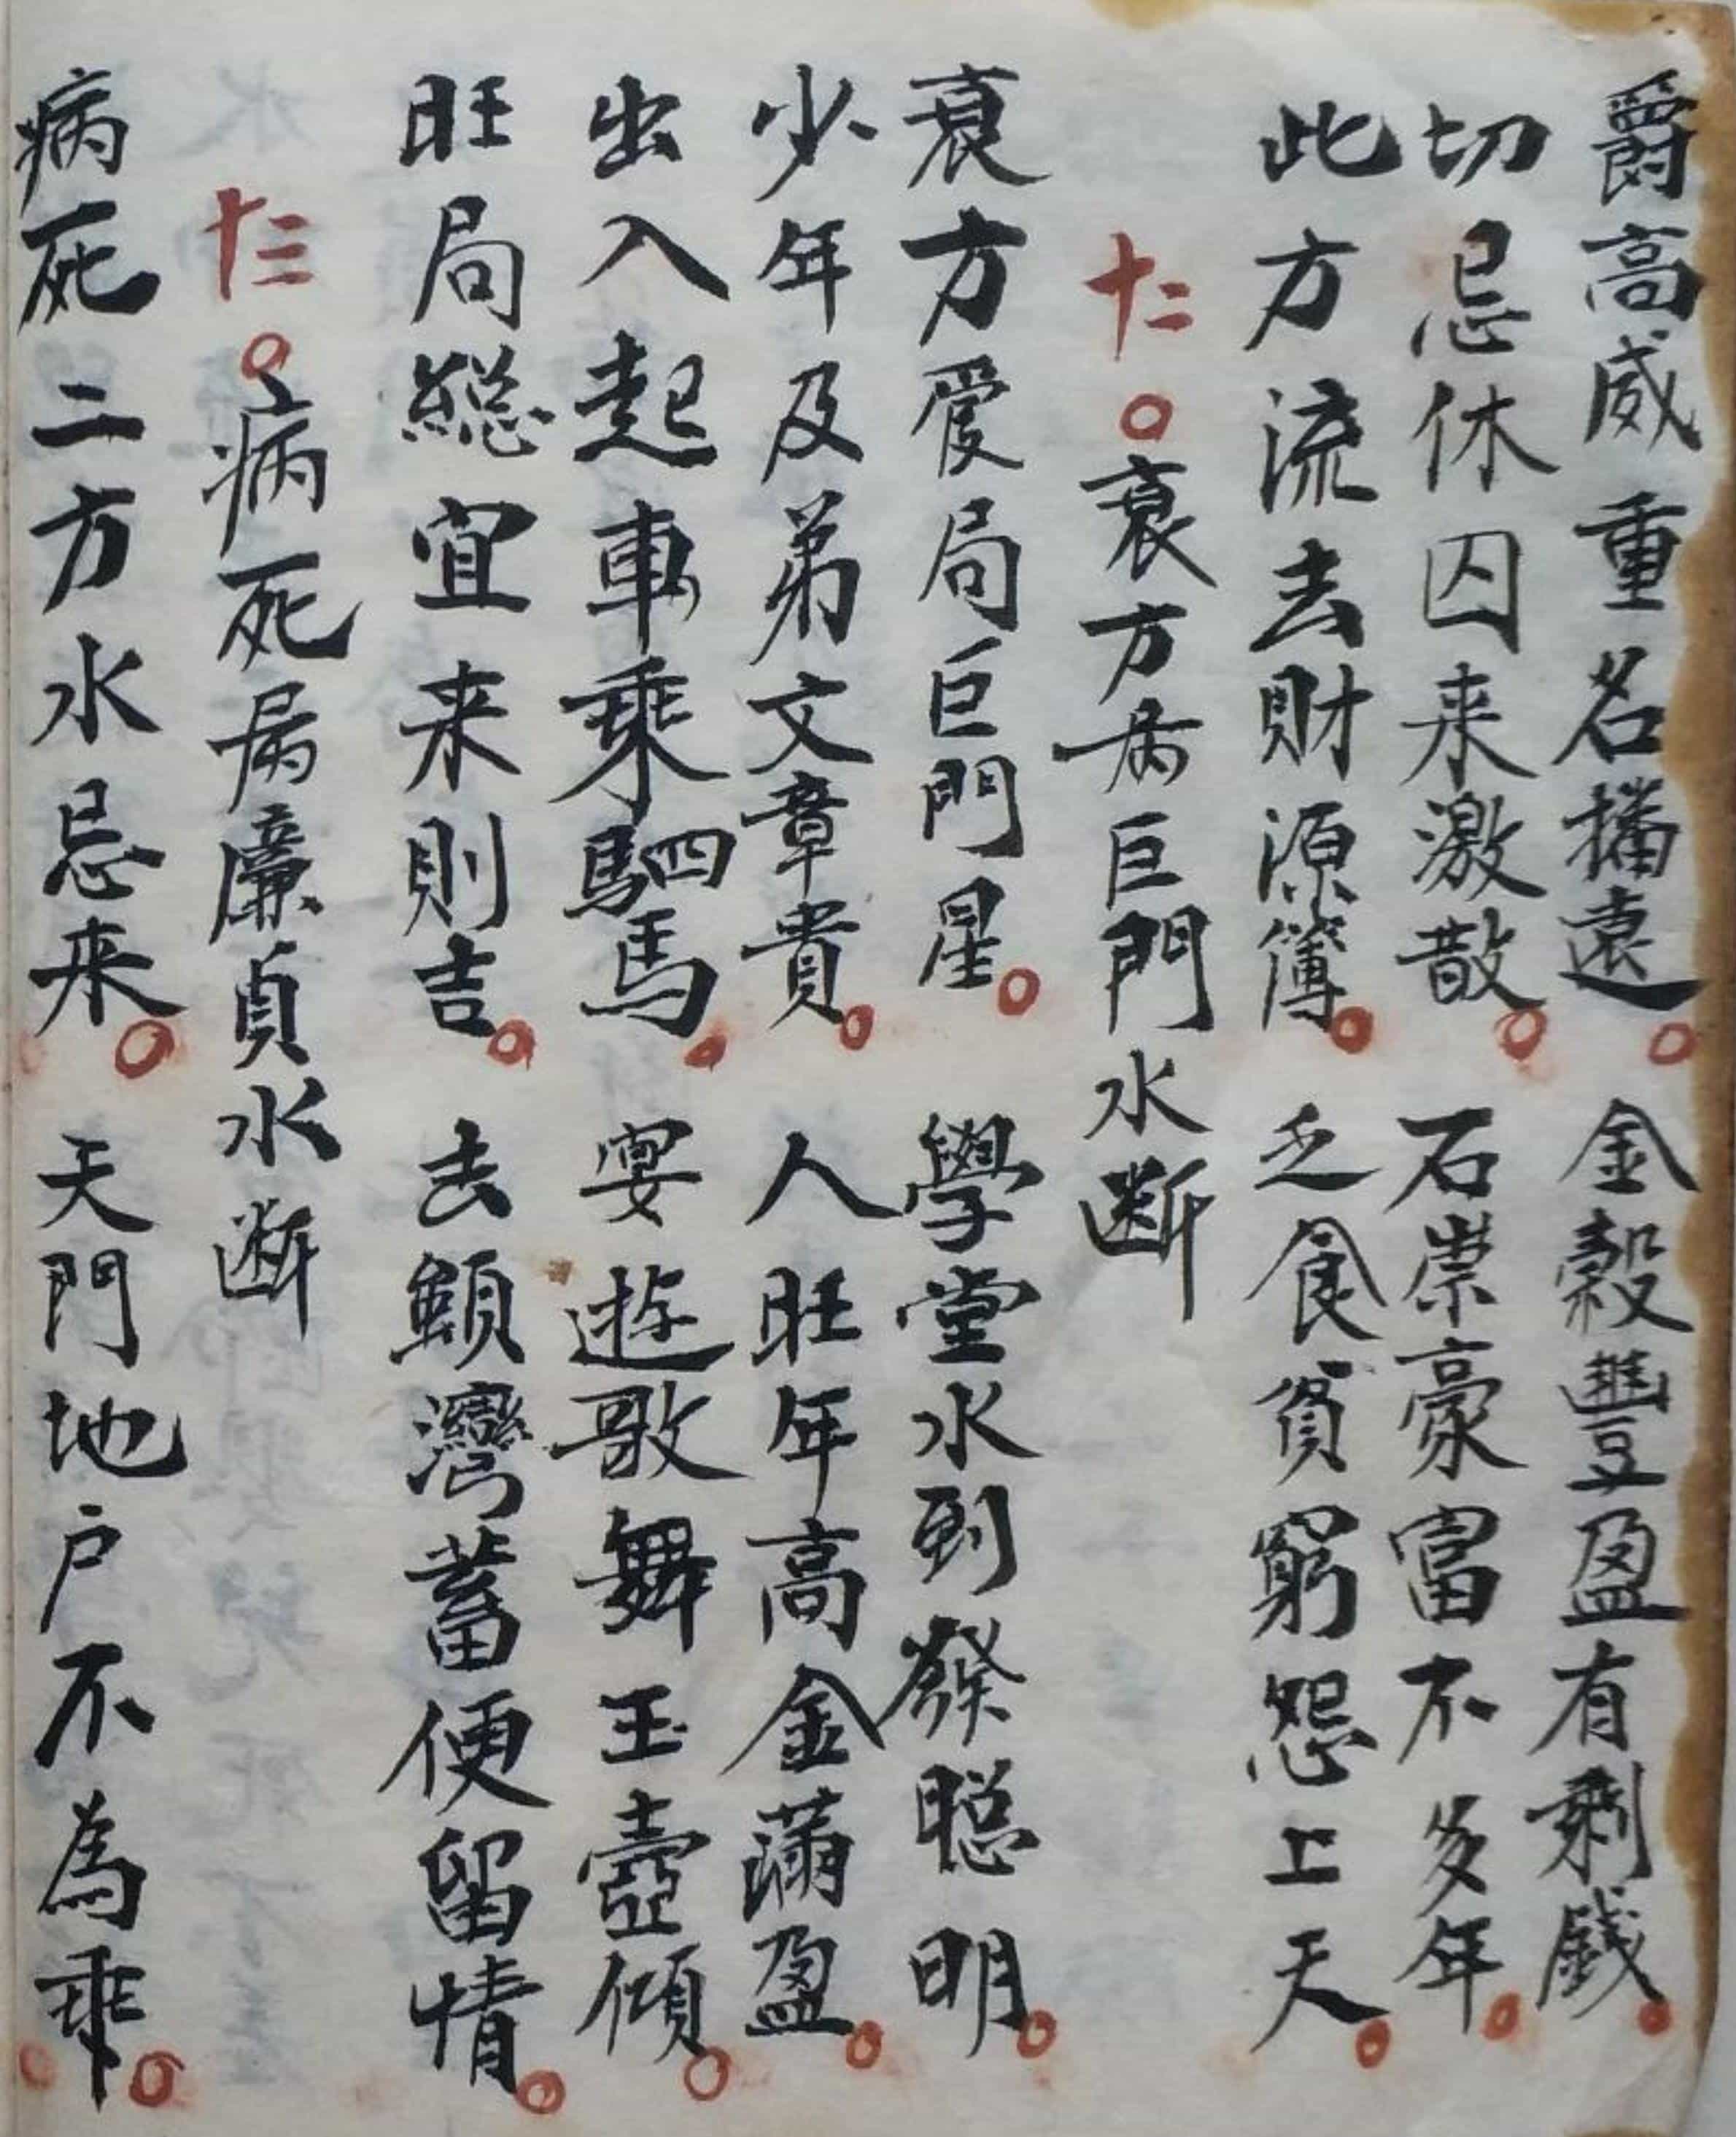 爵高威重名播遠。金穀豐盈有剩錢。
切忌休囚来激散。石崇豪富不多年。
此方流去財源簿。乏食貧窮怨上天。
十二〇衰方為巨門水断
衰方爰局巨門星。學堂水到發聡明。
少年及弟文章貴。人旺年高金滿盈。
出入起車乘駟馬。宴遊歌舞玉壺傾。
旺局総宜来則吉。去顊灣蓄便留情。
十三〇病死為廉貞水断
病死二方水忌来。天門地户不為乖。